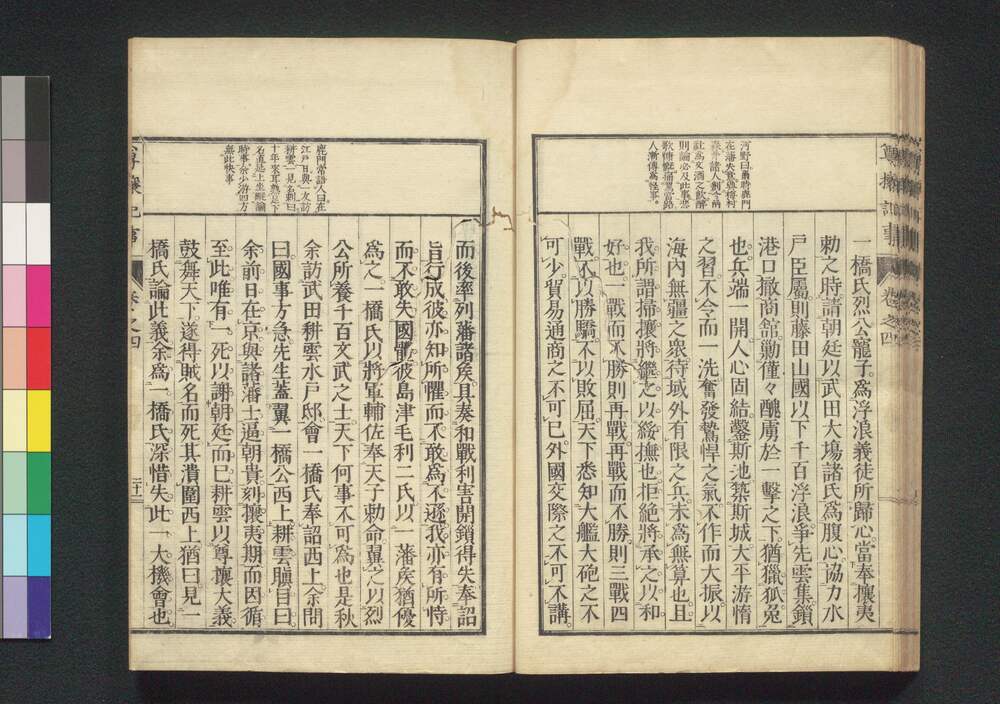 河野曰當時鹿門
在藩央與岡村
諸人創
社爲文酒之飲醉
則論必及此事悲
歌慷慨痛罵當路
人漸傳爲怪事
一橋氏烈公寵子爲浮浪義徒所歸心當奉攘夷
勅之時請朝廷以武田大塲諸氏爲腹心協力水
戶臣屬則藤田山國以下千百浮浪爭先雲集鎖
港口撤商館勦僅々醜虜於一擊之下猶獵狐兔
也兵端一開人心固結鑿斯池築斯城大平游惰
之習不令而一洗奮發鷙悍之氣不作而大振以
海內無疆之衆待域外有限之兵未爲無算也且
我所謂掃攘將繼之以綏撫也拒絕將承之以和
好也一戰而不勝則再戰再戰而不勝則三戰四
戰不以勝驕不以敗屈天下悉知大艦大砲之不
可少貿易通商之不可已外國交際之不可不講
尊攘記事
卷之四
鹿門常語人曰在
江戶日與一友訪
耕雲一見名刺曰
十年來耳熟足下
名直延上坐縱論
時事余少游四方
無此快事
而後率列藩諸侯具奏和戰利害開鎖得失奉詔
旨行成彼亦知所懼而不敢爲不遜我亦有所恃
而不敢失國體彼島津毛利二氏以一藩侯猶優
爲之一橋氏以將軍輔佐奉天子勅命舉之以烈
公所養千百文武之士天下何事不可爲也是秋
余訪武田耕雲水戶邸會一橋氏奉詔西上余問
曰國事方急先生蓋翼一橋公西上耕雲瞋目曰
余前日在京與諸藩士逼朝貴刻攘夷期而因循
至此唯有一死以謝朝廷而已耕雲以尊攘大義
鼓舞天下遂得賊名而死其潰圍西上猶曰見一
橋氏論此義余爲一橋氏深惜失此一大機會也
尊攘記事
卷之四